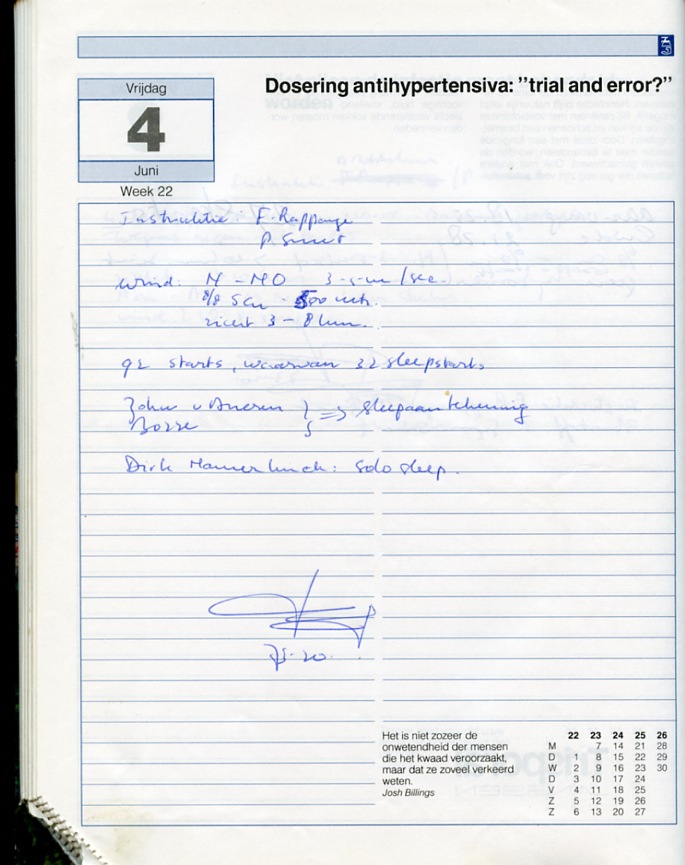 Dosering antihypertensiva: "trial and error?"
Vrijdag
4
Juni
Week 22
Instructie: F. Rappange
P. Smit
wind: N - NO 3-5 m/sec.
8/8 Scu - 500 mtr.
zicht 3 - 8 km.
92 starts, waarvan 32 sleepstarts
John v
Bosse } => sleepaantekening
Dirk : solo sleep.
Het is niet zozeer de
onwetendheid der mensen
die het kwaad veroorzaakt,
maar dat ze zoveel verkeerd
weten.
Josh Billings
22 23 24 25 26
M 7 14 21 28
D 1 8 15 22 29
W 2 9 16 23 30
D 3 10 17 24
V 4 11 18 25
Z 5 12 19 26
Z 6 13 20 27